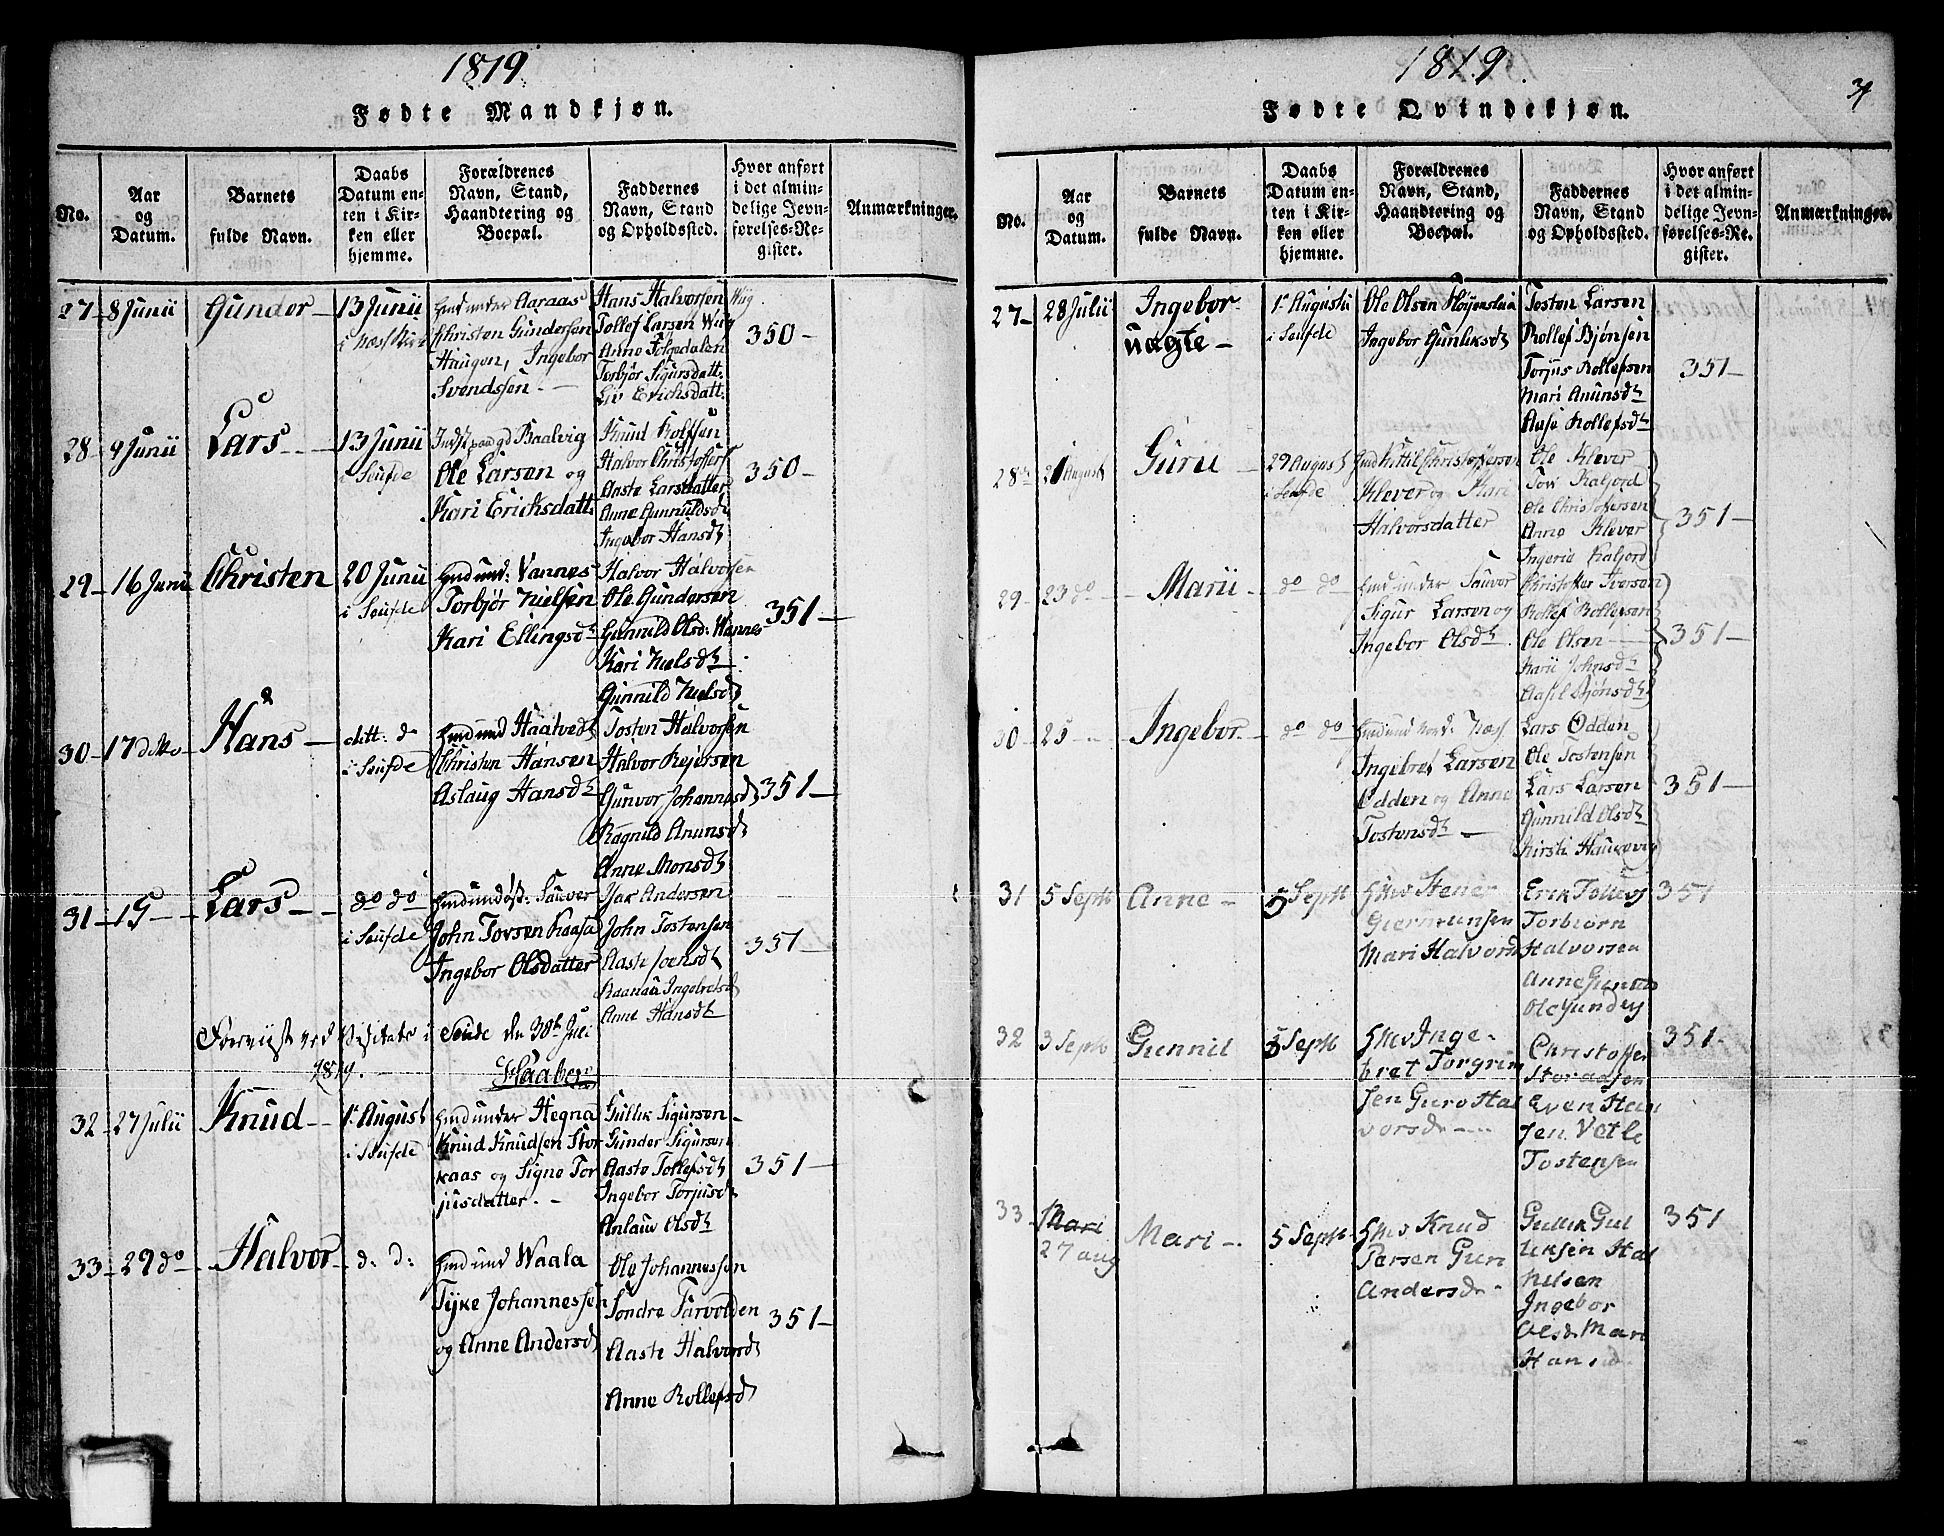 1819
Fødte Mandkjøn.
No.
Aar
og
Datum.
Barnets
fulde Navn.
Daabs
Datum en-
ten i Kir-
ken eller
hjemme.
Forældrenes
Navn, Stand,
Haandtering og
Boepæl.
Faddernes
Navn, Stand
og Opholdssted.
Hvor anført
i det almin-
delige Jevn-
førelses-Re-
gister.
Anmærkninger.
27 8 Junii Gunder 13 Junii
Christen Gundersen
Haugen, Ingebor
Svendssen
Hans Halvorsen
Tollef Larsen
Anne Folgedalen
Torbjør Sigursdatt.
Liv Ericksdatt.
350
28 9 Junii Lars 13 Junii
i Seufde
Baalvig
Ole Larsen og
Kari Ericksdatt.
Knud Rolfsen
Halvor Christoffers
Aaste Larsdatter
Anne Gunnuldsd
Ingebor Hansd
350
29 16 Junii Christen 20 Junii
i Seufde
Vannes
Torbjør Nielsen
Kari Ellingsd
Halvor Halvorsen
Ole Gundersen
Gunnild Olsd: Wannes
Kari Nielsd
Gunnild Nielsd
351
30 17 ditto Hans ditt: d
i Seufde
Haatvedt
Christen Hansen
Aslaug Hansd
Tosten Halvorsen
Halvor Rejersen
Gunvor Johannesd
Ragnild Anunsd
Anne Monsd
351
31 15 Lars do do
i Seufde
Sauver
John Torsen Kaasa
Ingebor Olsdatter
Andersen
John Tostensen
Aaste Joensd
Ingebretsd
Anne Hansd
351
Foreviist ved Visitats i Seude den 30th Juli
1819.
32 27 Julii Knud 1 August
i Seufde
under Hegna
Knud Knudsen Stor
kaas og Signe Tor
jusdatter.
Gullik Sigursøn
Gunder Sigursøn
Aaste Tollefsd
Ingebor Torjusd
Anlaug Olsd
351
33 29 do Halvor d: d:
Waala
Tyke Johannessen
og Anne Andersd
Ole Johannessen
Sondre Tarvolden
Aaste Halvorsd
Anne Rollefsd
351
1819.
Fødte Qvindekjøn.
No.
Aar
og
Datum.
Barnets
fulde Navn.
Daabs
Datum en-
ten i Kir-
ken eller
hjemme.
Forældrenes
Navn, Stand,
Haandtering og
Boepæl.
Faddernes
Navn, Stand
og Opholdssted.
Hvor anført
i det almin-
delige Jevn-
førelses-Re-
gister.
Anmærkninger.
27 28 Julii Ingebor
uægte
1 Augusti
i Seufde
Ole Olsen
Ingebor Gunliksd
Tosten Larsen
Rollef Bjønsen
Torjus Rollefsen
Mari Anunsd
Aase Rollefsd
351
28 21 August Guru 29 August
i Seufde
Kittil Christoffersen
Klever og Kari
Halvorsdatter
Ole Klever
Tovi Kaljord
Ole Christoffersen
Anne Klever
Ingerid Kaljord
351
29 23 do Marii do do
under Sauvor
Sigur Larsen og
Ingebor Olsd
Christoffer Iverson
Rollef Rollefsen
Ole Olsen
Karii Johnsd
351
30 25 Ingebor do do
Ingebret Larsen
Odden og Anne
Tostensd
Lars Odden
Ole Tostensen
Lars Larsen
Gunnild Olsd
Kirsti
351
31 5 Sept Anne 5 Sept
Stener
Giermunsen
Mari Halvorsd
Erik Tollefs
Torbiørn
Halvorsen
Anne
Ole Gunders
351
32 3 Sept Gunnil 5 Sept
Inge-
bret Torgrim
sen Guro Hal
vorsd
Christoffer
Storaasen
Even Han
sen. Vetle
Tostensen
351
33 Mari
27 aug Mari 5 Sept
Knud
Persen Gun
Andersd
Gullik Gul
liksen Hal
Nilsen
Ingebor
Olsd Mari
Hansd
351